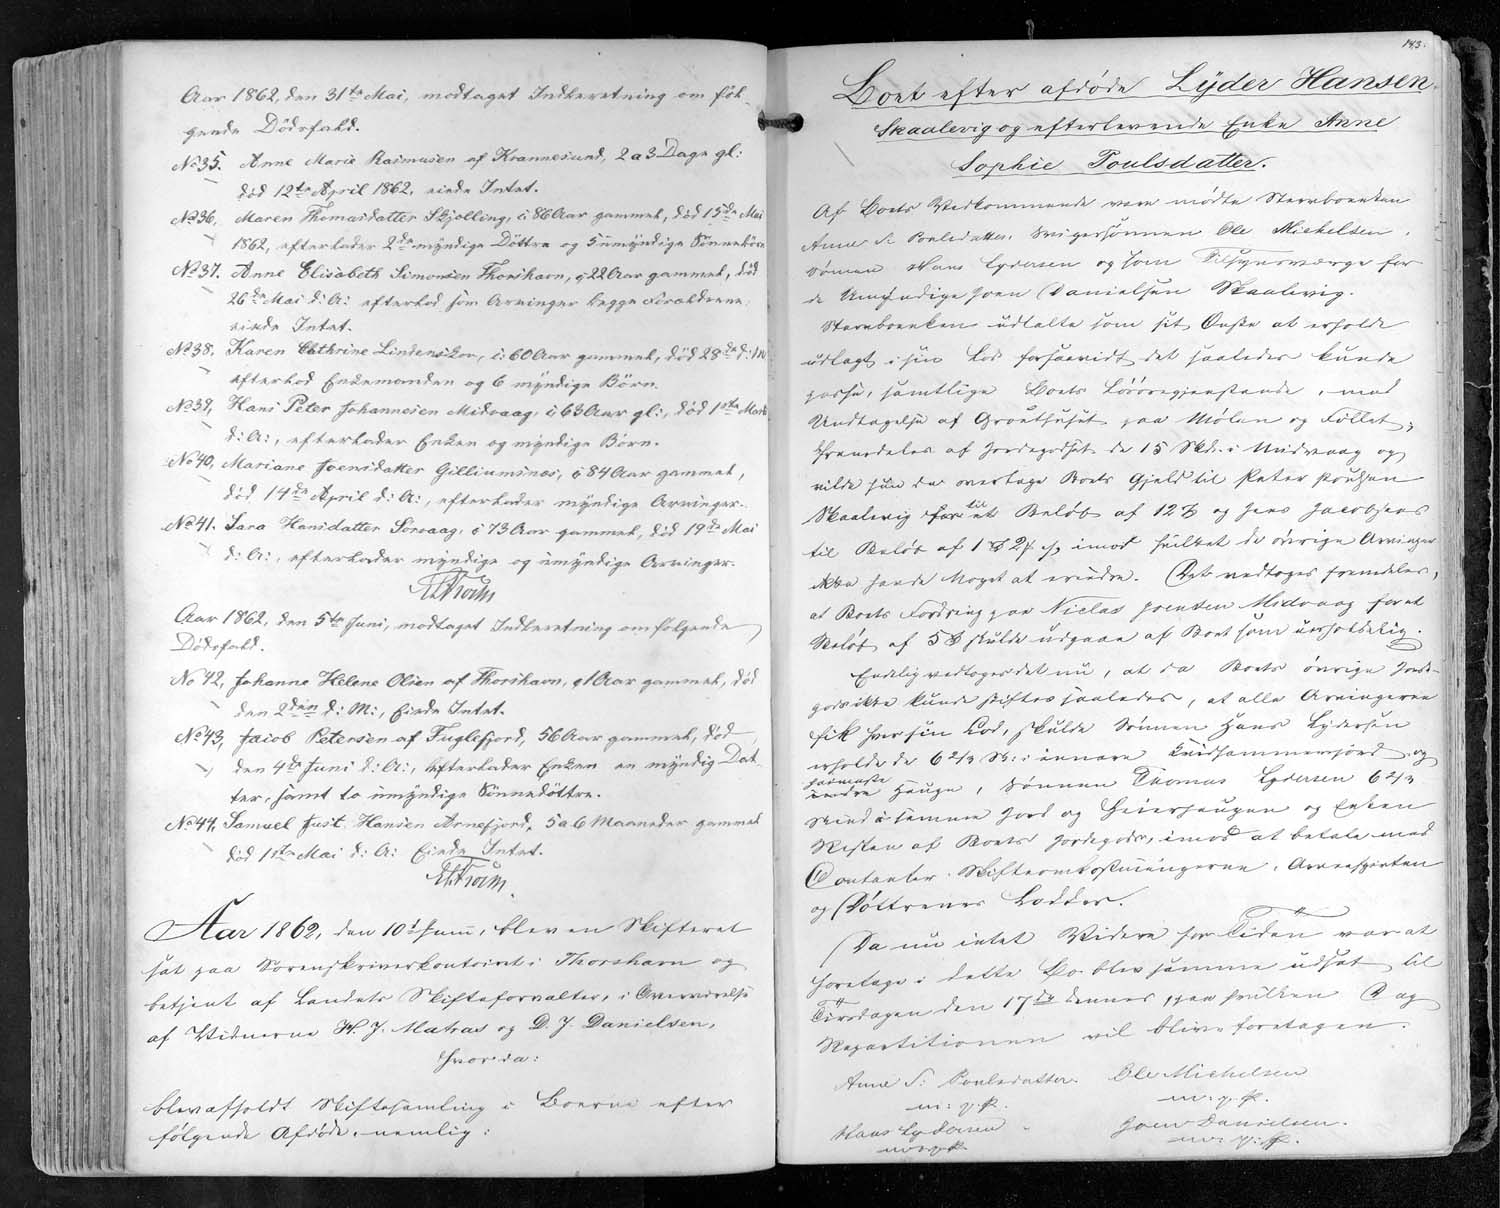 Aar 1862, den 31te Mai, modtaget Indberetning om føl-
gende Dødsfald.
No 35. Anne Marie Rasmusen af Krannesund, 2 a 3 Dage gl:
død 12te April 1862, eiede Intet.
No 36, Maren Thomasdatter Skjelling, 86 Aar gammel, død 15de Mai
1862, efterlader 2de myndige Döttre og 5 umyndige Sønnebörn
No 37. Anne Elisabeth Simonsen Thorshavn, 22 Aar gammel, död
26de Mai d: A: efterlod som Arvinger begge Forældrene
eiede Intet.
No 38, Karen Cathrine Lindenskov, 60 Aar gammel, død 28de d: M
efterlod Enkemanden og 6 myndige Börn.
No 39, Hans Peter Johannesen Midvaag, 63 Aar gl:, död 1ste Marts
d: A:, efterlader Enken og myndige Børn.
No 40, Mariane Joensdatter Gilliumsnæs, 84 Aar gammel,
død 14de April d: A:, efterlader myndige Arvinger.
No 41. Sara Hansdatter Sörvaag, 73 Aar gammel, död 19de Mai
d: A:, efterlader myndige og umyndige Arvinger.
Aar 1862, den 5te Juni, modtaget Indberetning om følgende
Dødsfald.
No 42, Johanne Helene Olsen af Thorshavn, 1 Aar gammel, död
den 2den d: M:, Eiede Intet.
No 43, Jacob Petersen af Fuglefjord, 56 Aar gammel, död
den 4de Juni d: A:, efterlader Enken en myndig Dat-
ter, samt to umyndige Sønnedöttre.
No 44, Samuel Just Hansen Arnefjord, 5 a 6 Maaneder gammel
död 1ste Mai d: A: Eiede Intet.
Aar 1862, den 10de Juni, blev en Skifteret
sat paa Sorenskriverkontoiret i Thorshavn og
betjent af Landets Skifteforvalter, i Overværelse
af Vidnerne H. J. Matras og D. J. Danielsen,
hvor da:
blev afholdt Skiftesamling i Boerne efter
følgende Afdøde, nemlig:
143.
Boet efter afdøde Lyder Hansen
Skaalevig og efterlevende Enke Anne
Sophie Poulsdatter.
Af Boets Vedkommende vare mødte Stervboenken
Anne S. Poulsdatter, Svigersönnen Ole Michelsen,
Sönnen Hans Lydersen og som Tilsynsværge for
de Umyndige Joen Danielsen Skaalevig.
Stervboenken udtalte som sit Önske at erholde
udlagt i sin Lod forsaavidt det saaledes kunde
passe, samtlige Boets Lösöregjenstande, med
Undtagelse af Grouthuset paa Mölen og Fället,
Fremdeles af Jordegodset de 15 Skd: i Midvaag og
vilde hun da overtage Boets Gjeld til Peter Poulsen
Skaalevig til et Belöb af 12 og Jens Jacobsens
til Beløb af 1 2, imod hvilket de övrige Arvinger
ikke havde Noget at erindre. Det vedtoges fremdeles,
at Boets Fordring paa Niclas Joensen Midvaag for et
Beløb af 5 skulde udgaae af Boet som uerholdelig.
Endelig vedtoges det nu, at da Boets övrige Jorde-
gods ikke kunde skiftes saaledes, at alle Arvingerne
fik hver sin Lod, skulde Sönnen Hans Lydersen
erholde de 6 2/3 Sk: i
Hauge, Sönnen Thomas Lydersen 6 2/3
Skind i samme Jord og Heierhaugen og Enken
Resten af Boets Jordegods, imod at betale med
Contanter Skifteomkostningerne, Arveafgiften
og Döttrenes Lodder.
Da nu intet Videre for Tiden var at
foretage i dette Bo blev samme udsat til
Tirsdagen den 17de dennes, paa hvilken Dag
Repartitionen vil blive foretagen.
Anne S: Poulsdatter Ole Michelsen
m: p. P. m. p. P.
Hans Lydersen Joen Danielsen.
m. p. P. m. p. P.